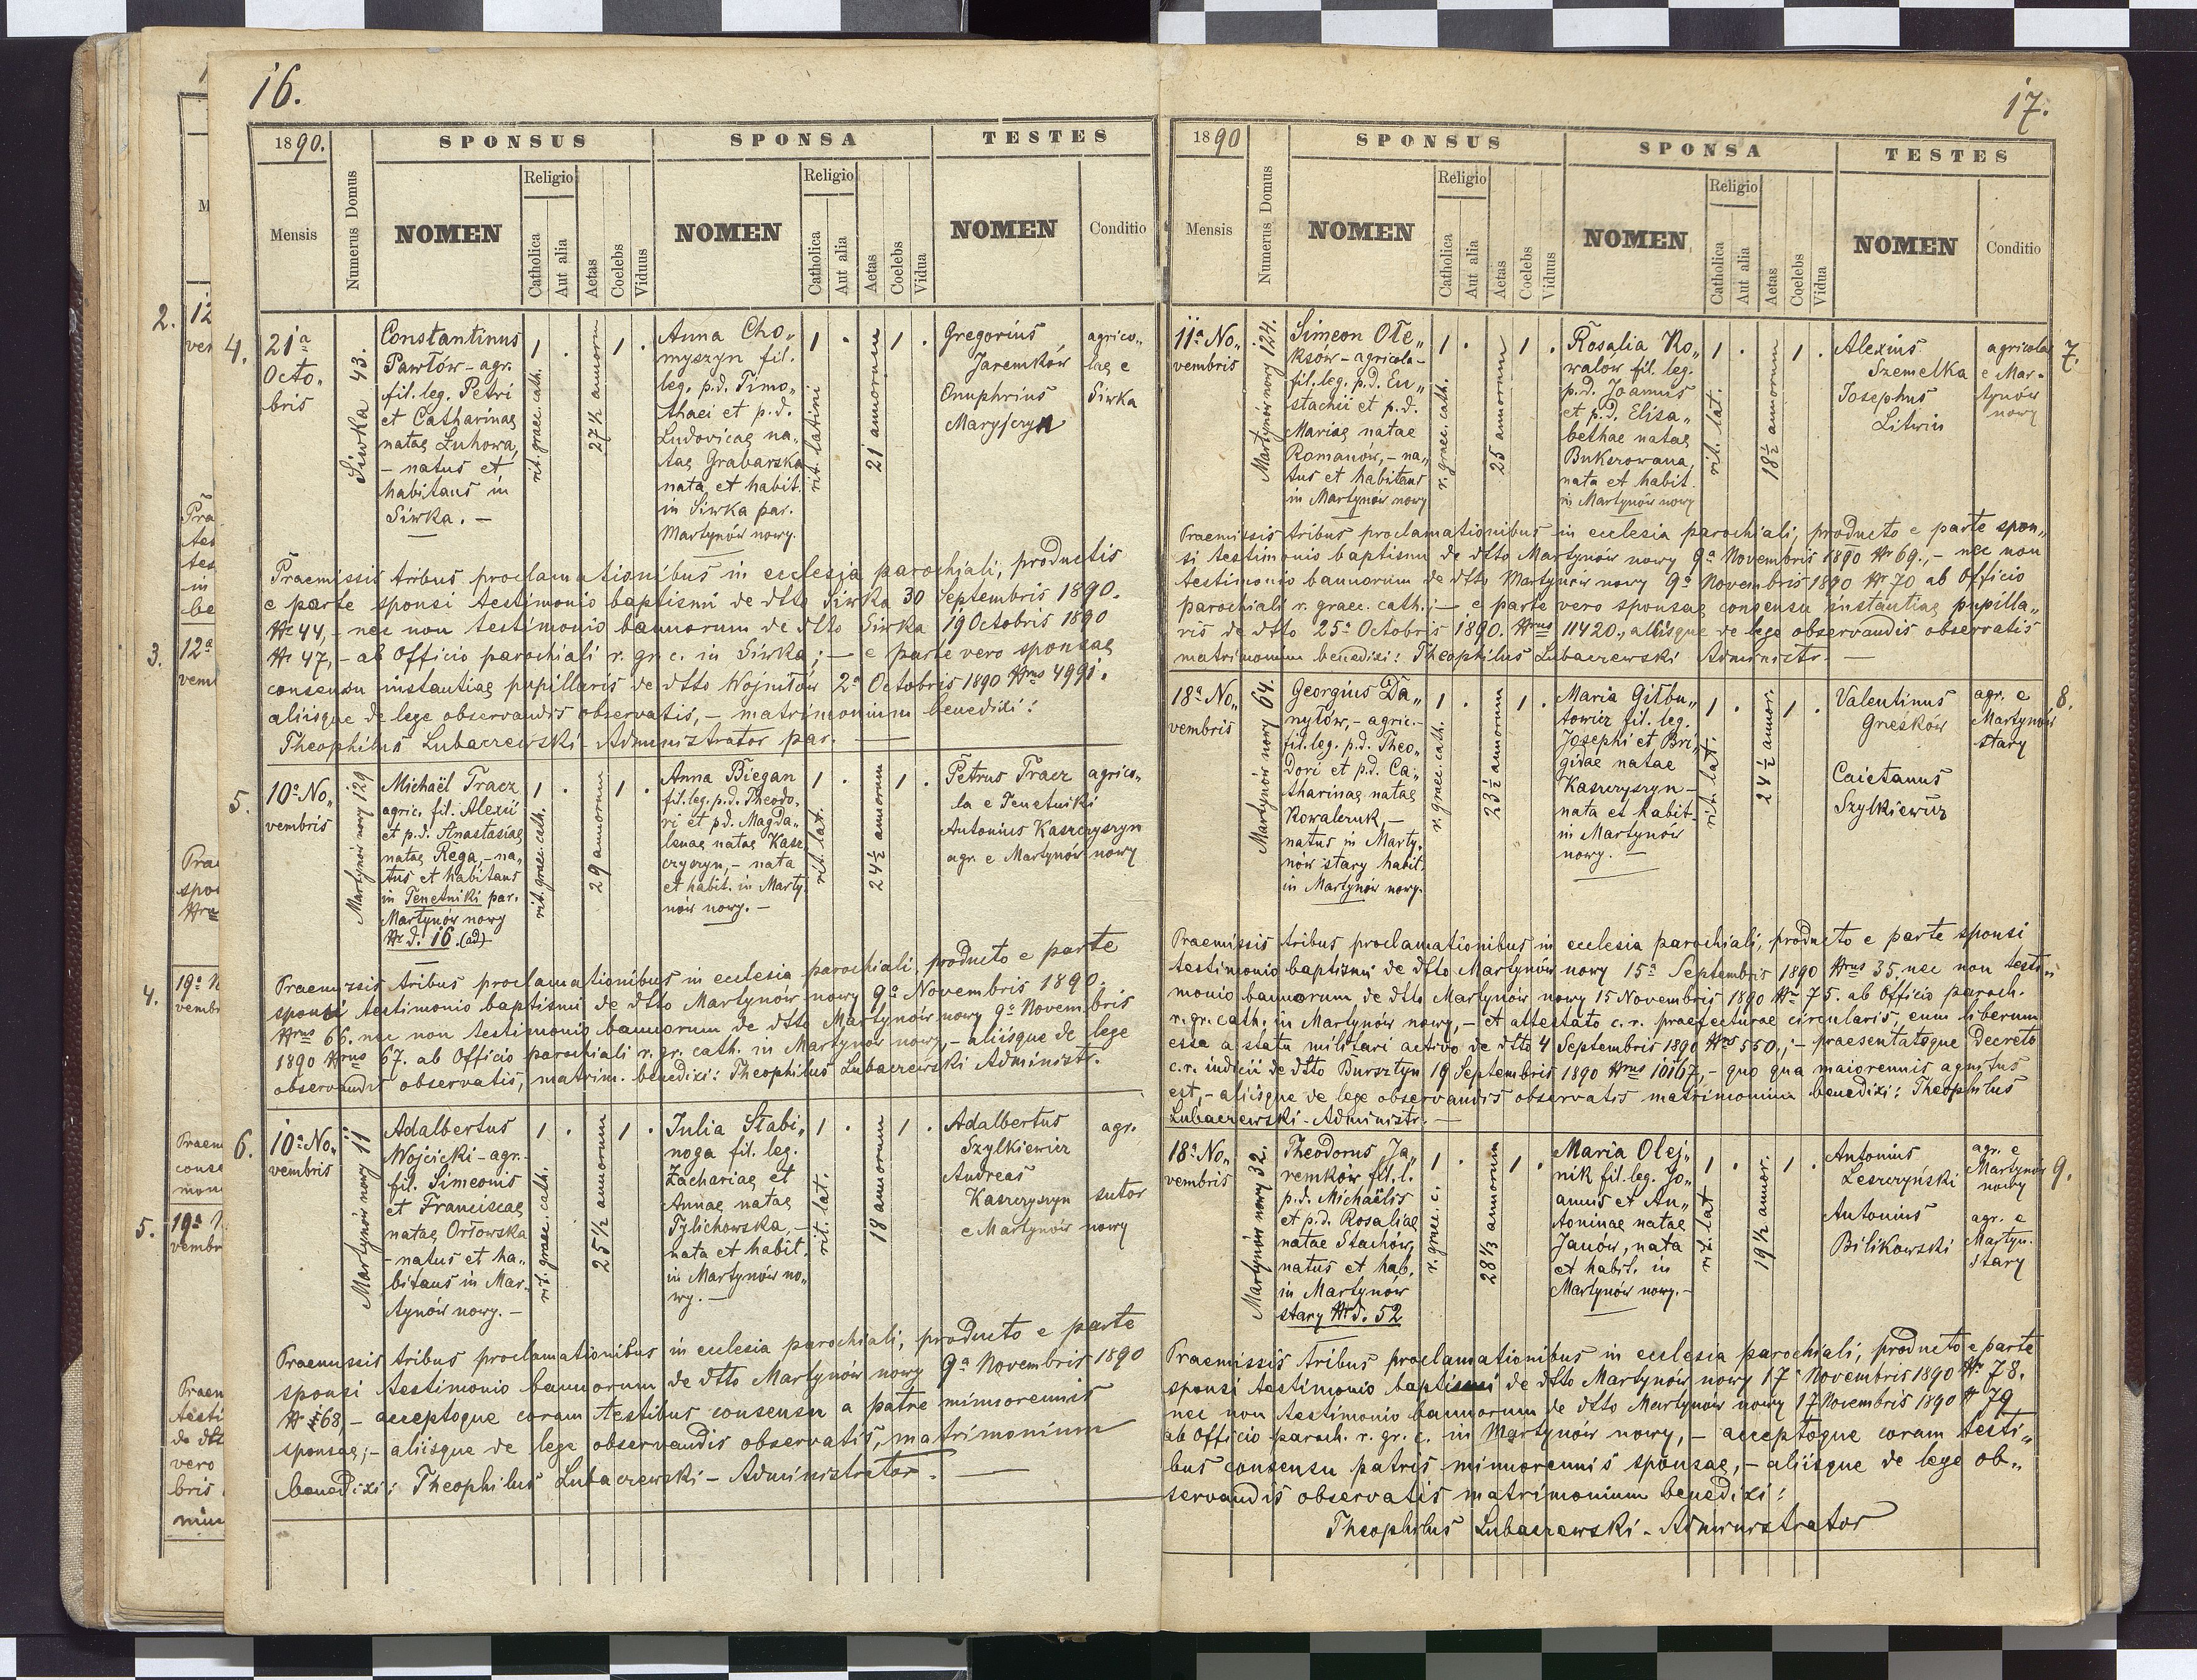 16.
1890.
SPONSUS
SPONSA
TESTES
Mensis
Numerus Domus
NOMEN
Religio
Catholica
Aut alia
Aetas
Coelebs
Viduus
NOMEN
Religio
Catholica
Aut alia
Aetas
Coelebs
Vidua
NOMEN
Conditio
4.
21a
Octo„
bris
Siwka 43.
Constantinus
Pawłów - agr.
fil. leg. Petri
et Catharinae
natae Luhowa,
- natus et
habitans in
Siwka. -
1
rit. graec. cath.
27 1/2 annorum
1
Anna Cho„
myszyn fil.
leg. p.d. Timo„
thaei et p.d.
Ludovicae na„
tae Grabarska
nata et habit.
in Siwka par.
Martynów nowy.
1
rit. latini
21 annorum
1
Gregorius
Jaremków
Onuphrius
agrico„
lae e
Siwka
Praemissis tribus proclamationibus in ecclesia parochiali, productis
e parte sponsi testimonio baptismi de dtto Siwka 30 Septembris 1890.
Nr 44, - nec non testimonio bannorum de dtto Siwka 19 Octobris 1890
Nr 47, - ab Officio parochiali r. gr. c. in Siwka; - e parte vero sponsae
consensu instantiae pupillaris de dtto Wojniłów 2a Octobris 1890 Nrus 4991.
aliisque de lege observandis observatis, - matrimonium benedixi:
Theophilus Lubaczewski - Administrator par.
5.
10a No„
vembris
Martynów nowy 129
Michaël Tracz
agric. fil. Alexii
et p.d. Anastasiae
natae Rega, - na„
tus et habitans
in Tenetniki par.
Martynów nowy
Nr d. 16. (ad)
1
rit. graec. cath.
29 annorum
1
Anna Biegan
fil. leg. p.d. Theodo„
ri et p.d. Magda„
lenae natae Kasz
czyszyn, - nata
et habit. in Marty„
nów nowy. -
1
rit. lat.
24 1/2 annorum
1
Petrus Tracz agrico„
la e Tenetniki
Antonius Kaszczyszyn
agr. e Martynów nowy
Praemissis tribus proclamationibus in ecclesia parochiali, producto e parte
sponsi testimonio baptismi de dtto Martynów nowy 9a Novembris 1890.
Nrus 66. nec non testimonio bannorum de dtto Martynów nowy 9a Novembris
1890 Nrus 67. ab Officio parochiali r. gr. cath. in Martynów nowy, - aliisque de lege
observandis observatis, matrim. benedixi: Theophilus Lubaczewski Administr.
6.
10a No„
vembris
Martynów nowy 11
Adalbertus
Wojcicki - agr.
fil. Simeonis
et Franciscae
natae Orłowska
- natus et ha„
bitans in Mar„
tynów nowy. -
1
rit. graec. cath.
25 1/2 annorum
1
Julia Stabi„
noga fil. leg.
Zachariae et
Annae natae
Tylichowska, -
nata et habit.
in Martynów no„
wy. -
1
rit. lat.
18 annorum
1
Adalbertus
Szylkiewicz
agr.
Andreas
Kaszczyszyn
sutor
e Martynów nowy
Praemissis tribus proclamationibus in ecclesia parochiali, producto e parte
sponsi testimonio bannorum de dtto Martynów nowy 9a Novembris 1890
Nr 68, - acceptoque coram testibus consensu a patre minorennis
sponsae; - aliisque de lege observandis observatis, matrimonium
benedixi: Theophilus Lubaczewski - Administrator. -
17.
1890
SPONSUS
SPONSA
TESTES
Mensis
Numerus Domus
NOMEN
Religio
Catholica
Aut alia
Aetas
Coelebs
Viduus
NOMEN
Religio
Catholica
Aut alia
Aetas
Coelebs
Vidua
NOMEN
Conditio
7.
11a No„
vembris
Martynów nowy 124.
Simeon Ole„
ksów - agricola -
fil. leg. p.d. Eu„
stachii et p.d.
Mariae natae
Romanów, - na„
tus et habitans
in Martynów nowy
1
r. graec. cath.
25 annorum
1
Rosalia Ko„
walów fil. leg.
p.d. Joannis
et p.d. Elisa„
bethae natae
Bukszowana,
nata et habit.
in Martynów nowy
1
rit. lat.
18 1/2 annorum
1
Alexius
Szemelka
Josephus
Litwin
agricolae
e Mar„
tynów
nowy
Praemissis tribus proclamationibus in ecclesia parochiali, producto e parte spon„
si testimonio baptismi de dtto Martynów nowy 9a Novembris 1890 Nr 69., - nec non
testimonio bannorum de dtto Martynów nowy 9a Novembris 1890 Nr 70 ab Officio
parochiali r. graec. cath.; - e parte vero sponsae consensu instantiae pupilla„
ris de dtto 25a Octobris 1890. Nrus 11420., aliisque de lege observandis observatis
matrimonium benedixi: Theophilus Lubaczewski Administr. -
8.
18a No„
vembris
Martynów nowy 64.
Georgius Da„
nyłów, - agric. -
fil. leg. p.d. Theo„
dori et p.d. Ca„
tharinae natae
Kowalczuk, -
natus in Marty„
nów stary habit.
in Martynów nowy.
1
r. graec. cath.
23 1/2 annorum
1
Maria Gitbu„
towicz fil. leg.
Josephi et Bri„
gidae natae
Kaszczyszyn -
nata et habit.
in Martynów
nowy. -
1
rit. lat.
24 1/2 annor.
1
Valentinus
Greśków
Caietanus
Szylkiewicz
agr. e
Martynów
stary
Praemissis tribus proclamationibus in ecclesia parochiali, producto e parte sponsi
testimonio baptismi de dtto Martynów nowy 15a Septembris 1890 Nrus 35. nec non testi„
monio bannorum de dtto Martynów nowy 15 Novembris 1890 Nr 75. ab Officio paroch.
r. gr. cath. in Martynów nowy, - et attestato c. r. praefecturae circularis, eum liberum
esse a statu militari activo de dtto 4 Septembris 1890 Nrus 550.; - praesentatoque Decreto
c. r. iudicii de dtto Bursztyn 19 Septembris 1890 Nrus 10167, - quo qua maiorennis agnitus
est, - aliisque de lege observandis observatis matrimonium benedixi: Theophilus
Lubaczewski - Administr. -
9.
18a No„
vembris
Martynów nowy 32.
Theodorus Ja„
remków fil. l.
p.d. Michaëlis
et p.d. Rosaliae
natae Stachów,
natus et hab.
in Martynów
stary Nr d. 52
1
r. graec. c.
28 1/3 annorum
1
Maria Olej„
nik fil. leg. Jo„
annis et An„
toninae natae
Janów, nata
et habit. in
Martynów nowy. -
1
rit. lat
19 1/2 annor.
1
Antonius
Leszczyński
Antonius
Bilikowski
agr. e
Martynów
nowy
agr. e
Martyn.
stary
Praemissis tribus proclamationibus in ecclesia parochiali, producto e parte
sponsi testimonio baptismi de dtto Martynów nowy 17 Novembris 1890 Nr 78.
nec non testimonio bannorum de dtto Martynów nowy 17 Novembris 1890 N 79
ab Officio paroch. r. gr. c. in Martynów nowy, - acceptoque coram testi„
bus consensu patris minorennis sponsae, - aliisque de lege ob„
servandis observatis matrimonium benedixi:
Theophilus Lubaczewski - Administrator
2.
12
3.
12a
4.
19a N
vembr
5.
19a
vembr